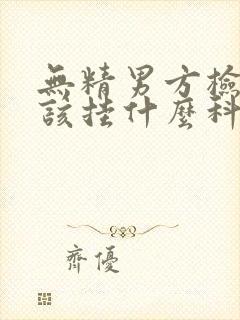 無精男方檢
該挂什麼科
齊優